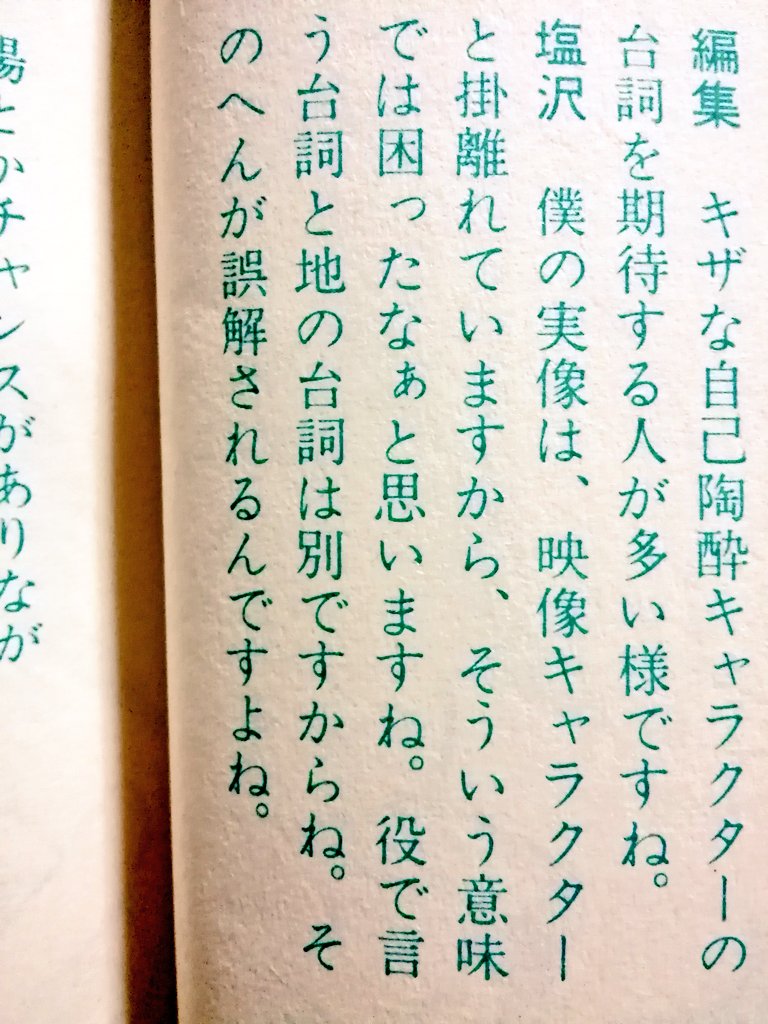 編集　キザな自己陶酔キャラクターの
台詞を期待する人が多い様ですね。
塩沢　僕の実像は、映像キャラクター
と掛離れていますから、そういう意味
では困ったなぁと思いますね。役で言
う台詞と地の台詞は別ですからね。そ
のへんが誤解されるんですよね。
場とかチャンスがありなが